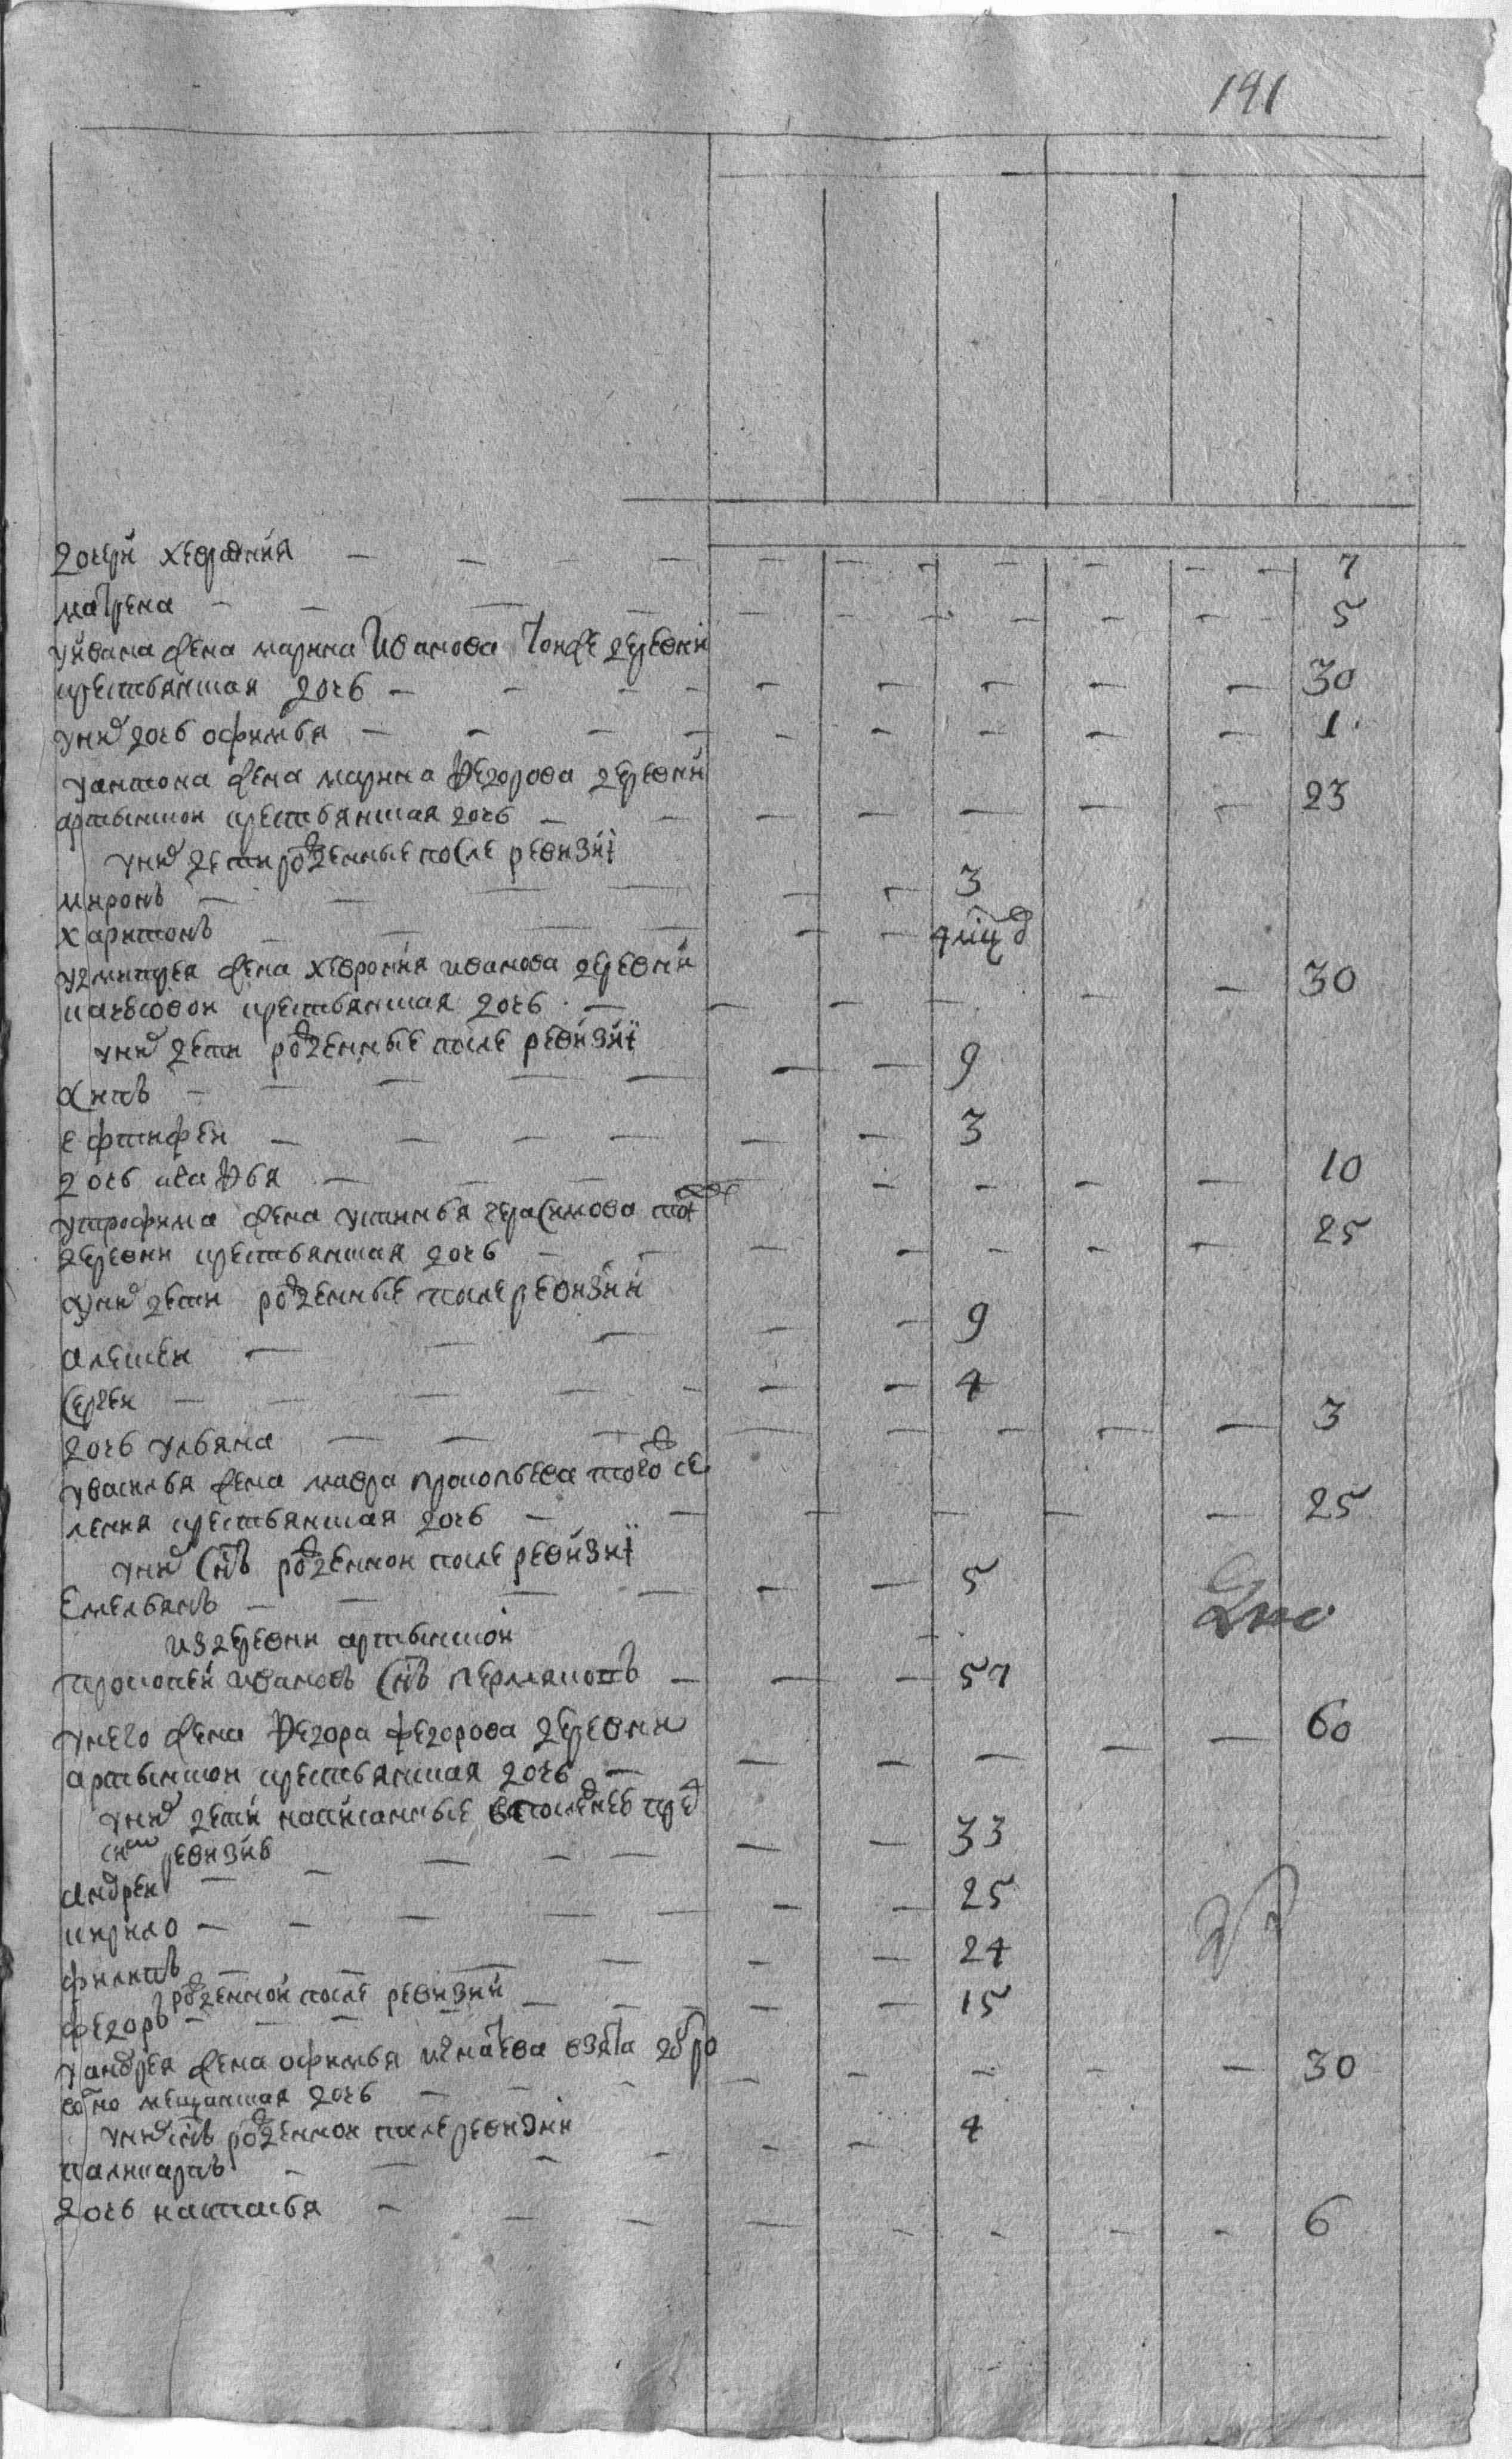 191
дочери хеврония — — — 7
матрена — — — 5
уивана жена марина Иванова тоиже деревни
крестьянская дочь — — — 30
унихъ дочь офимья — — — 1
уантона жена марина Федорова деревни
артынской крестьянская дочь — — — 23
унихъ дети рожденные после ревизиї
миронъ — — — 3
харитонъ — — — 4 мцъ
удмитрея жена хеврония иванова деревни
крестьянская дочь — — — 30
унихъ дети рожденные после ревизиї
осипъ — — — 9
ефтифеи — — — 3
дочь — — — 10
утрофима жена устинья герасимова тоеж
деревни крестьянская дочь — — — 25
унихъ дети рожденные после ревизии
алексеи — — — 9
сергеи — — — 4
дочь ульяна — — — 3
увасилья жена мавра прокопьева тогож се
ления крестьянская дочь — — — 25
унихъ снъ рожденной после ревизиї
Емельянъ — — — 5
из деревни артынскои
прокопеи ивановъ снъ пермяковъ — — — 57
унего жена Федора федорова деревни
артынскои крестьянская дочь — — — 60
унихъ дети написанные в последнею пред
сим ревизию
андреи — — — 33
кирило — — — 25
филипъ — — — 24
рожденной после ревизии
федоръ — — — 15
уандрея жена офимья игнатева взята добро
волно мещанская дочь — — — 30
унихъ снъ рожденнои после ревизии
поликарпъ — — — 4
дочь настасья — — — 6